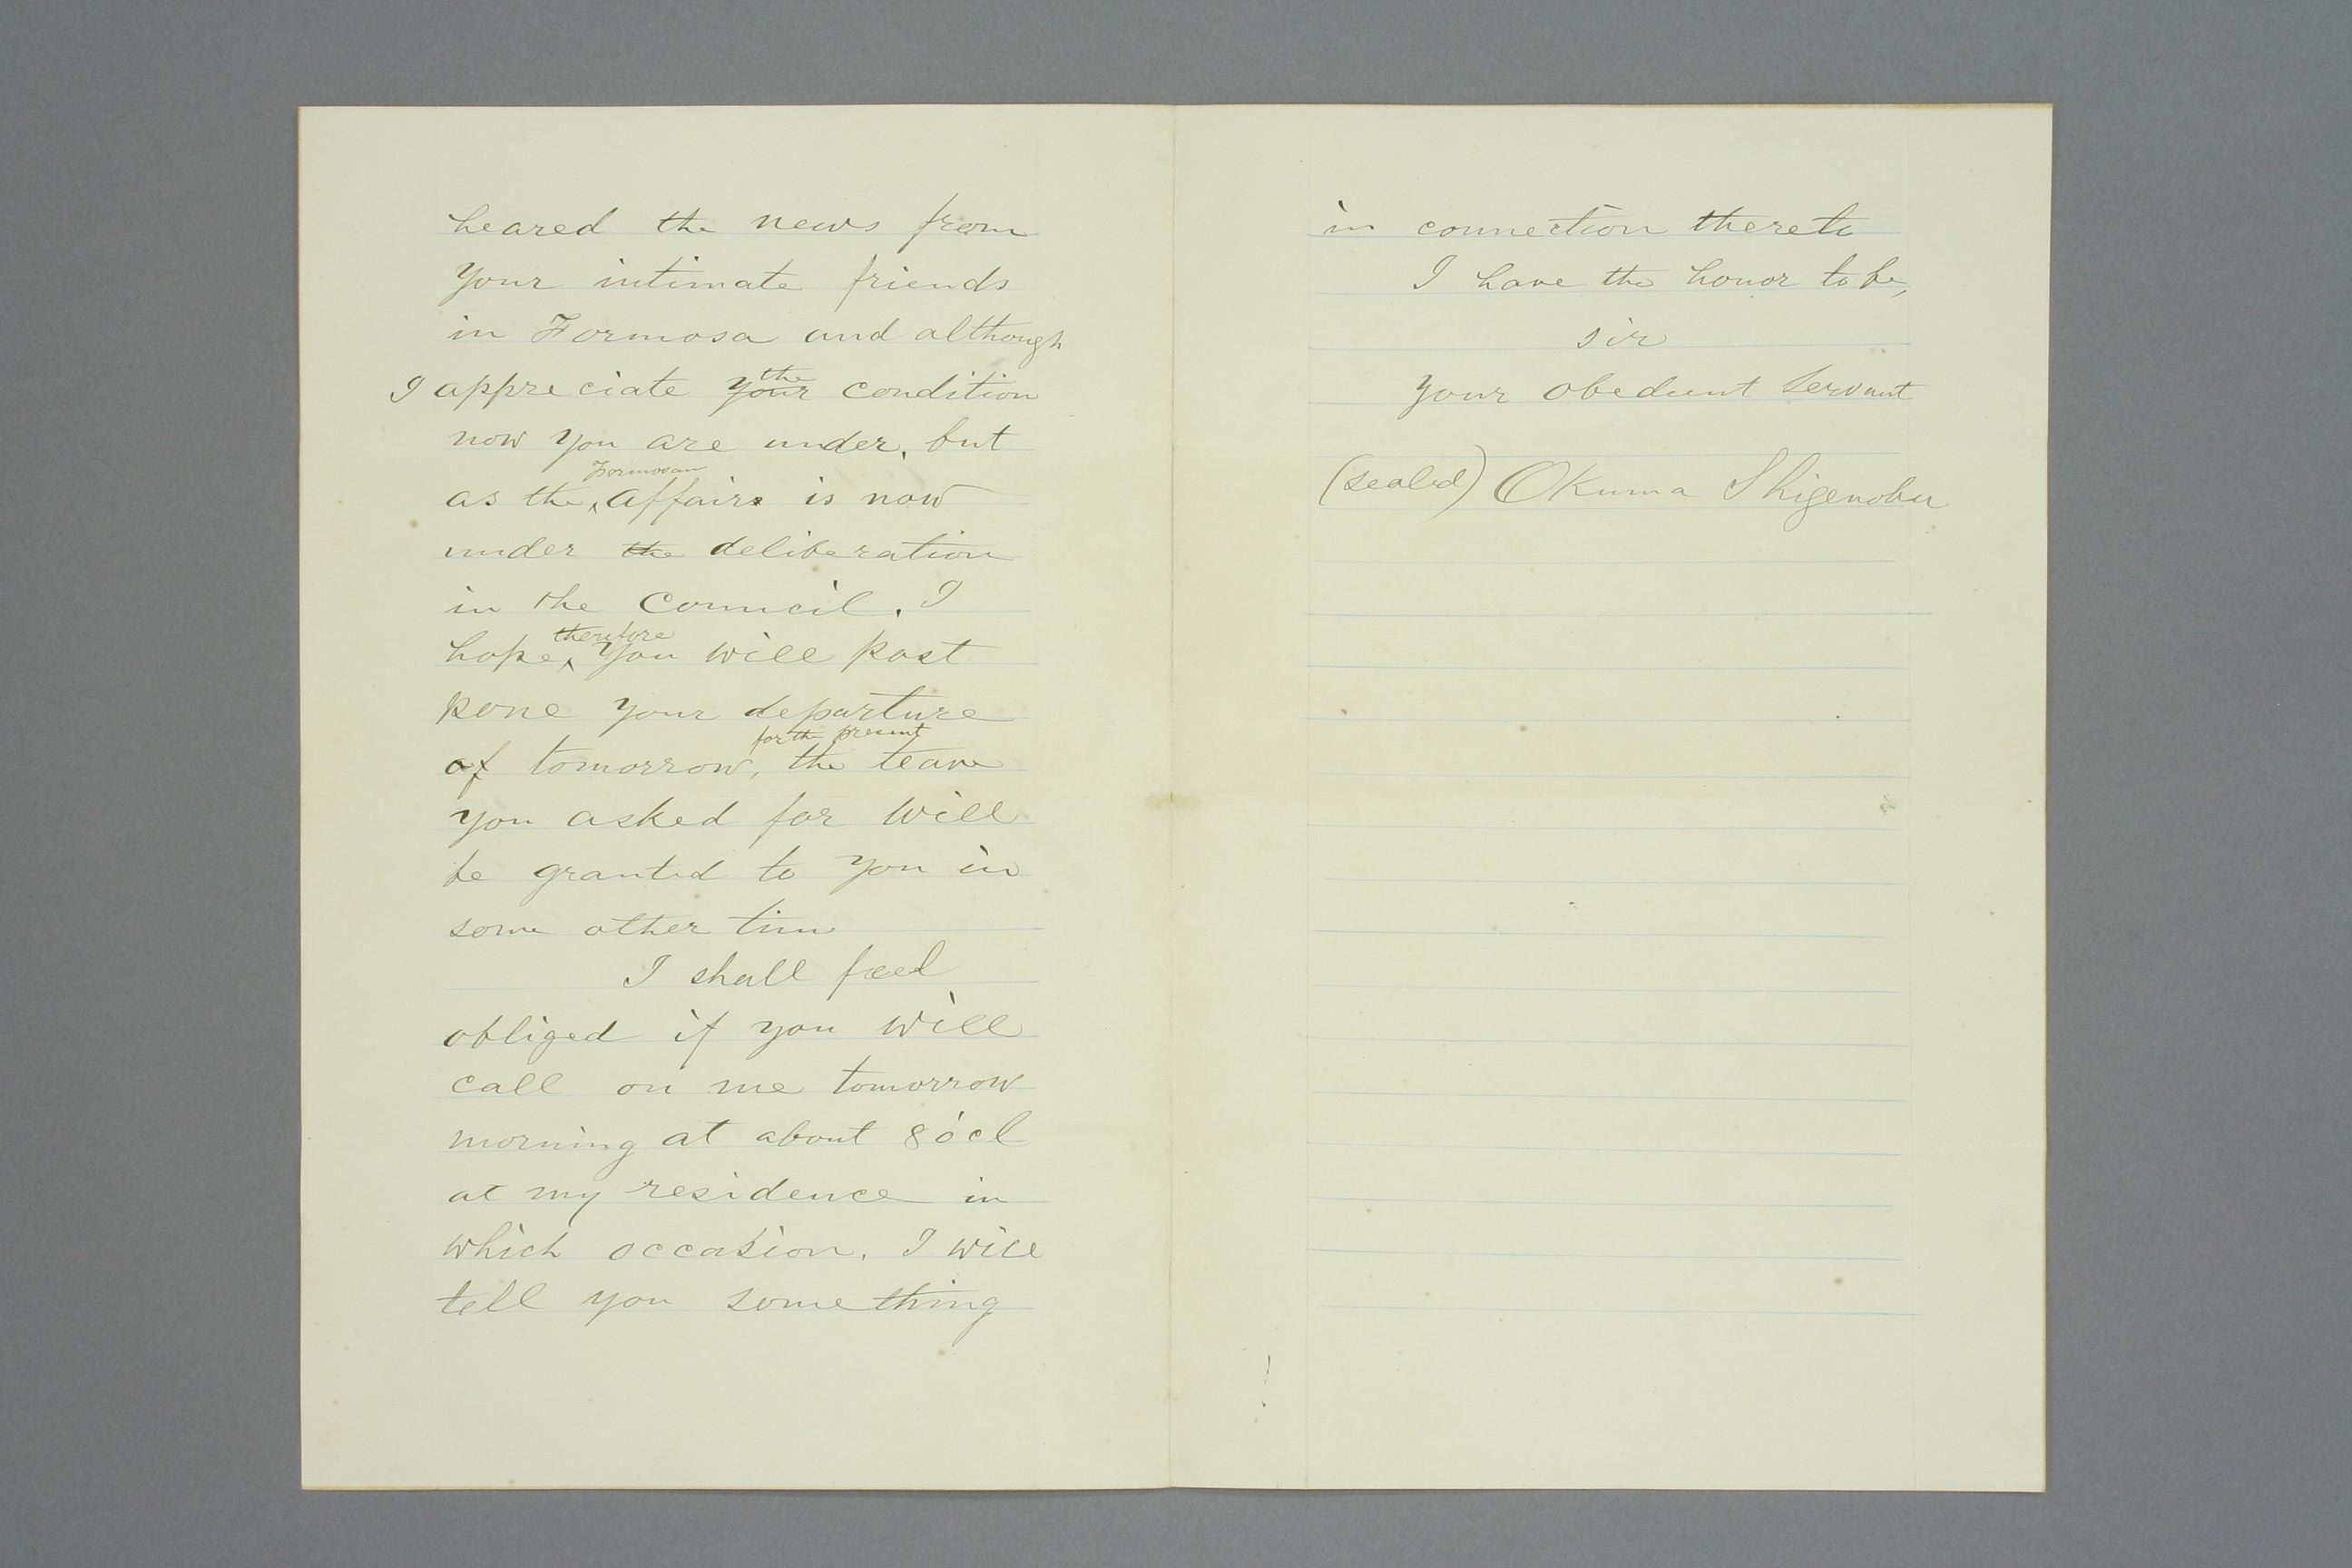 heared the news from
your intimate friends
in Formosa and although
the
I appreciate your condition
now you are under, but
Formosan
as the affairs is now
under the deliberation
in the Council. I
therefore
hope, you will post
pone your departure
for the present
of tomorrow, the leave
you asked for will
be granted to you in
some other time
I shall feel
obliged if you will
call on me tomorrow
morning at about 8 o'cl
at my residence in
which occasion, I will
tell you something
in connection thereto
I have the honor to be,
sir
your obedient servant
(sealed) Okuma Shigenobu